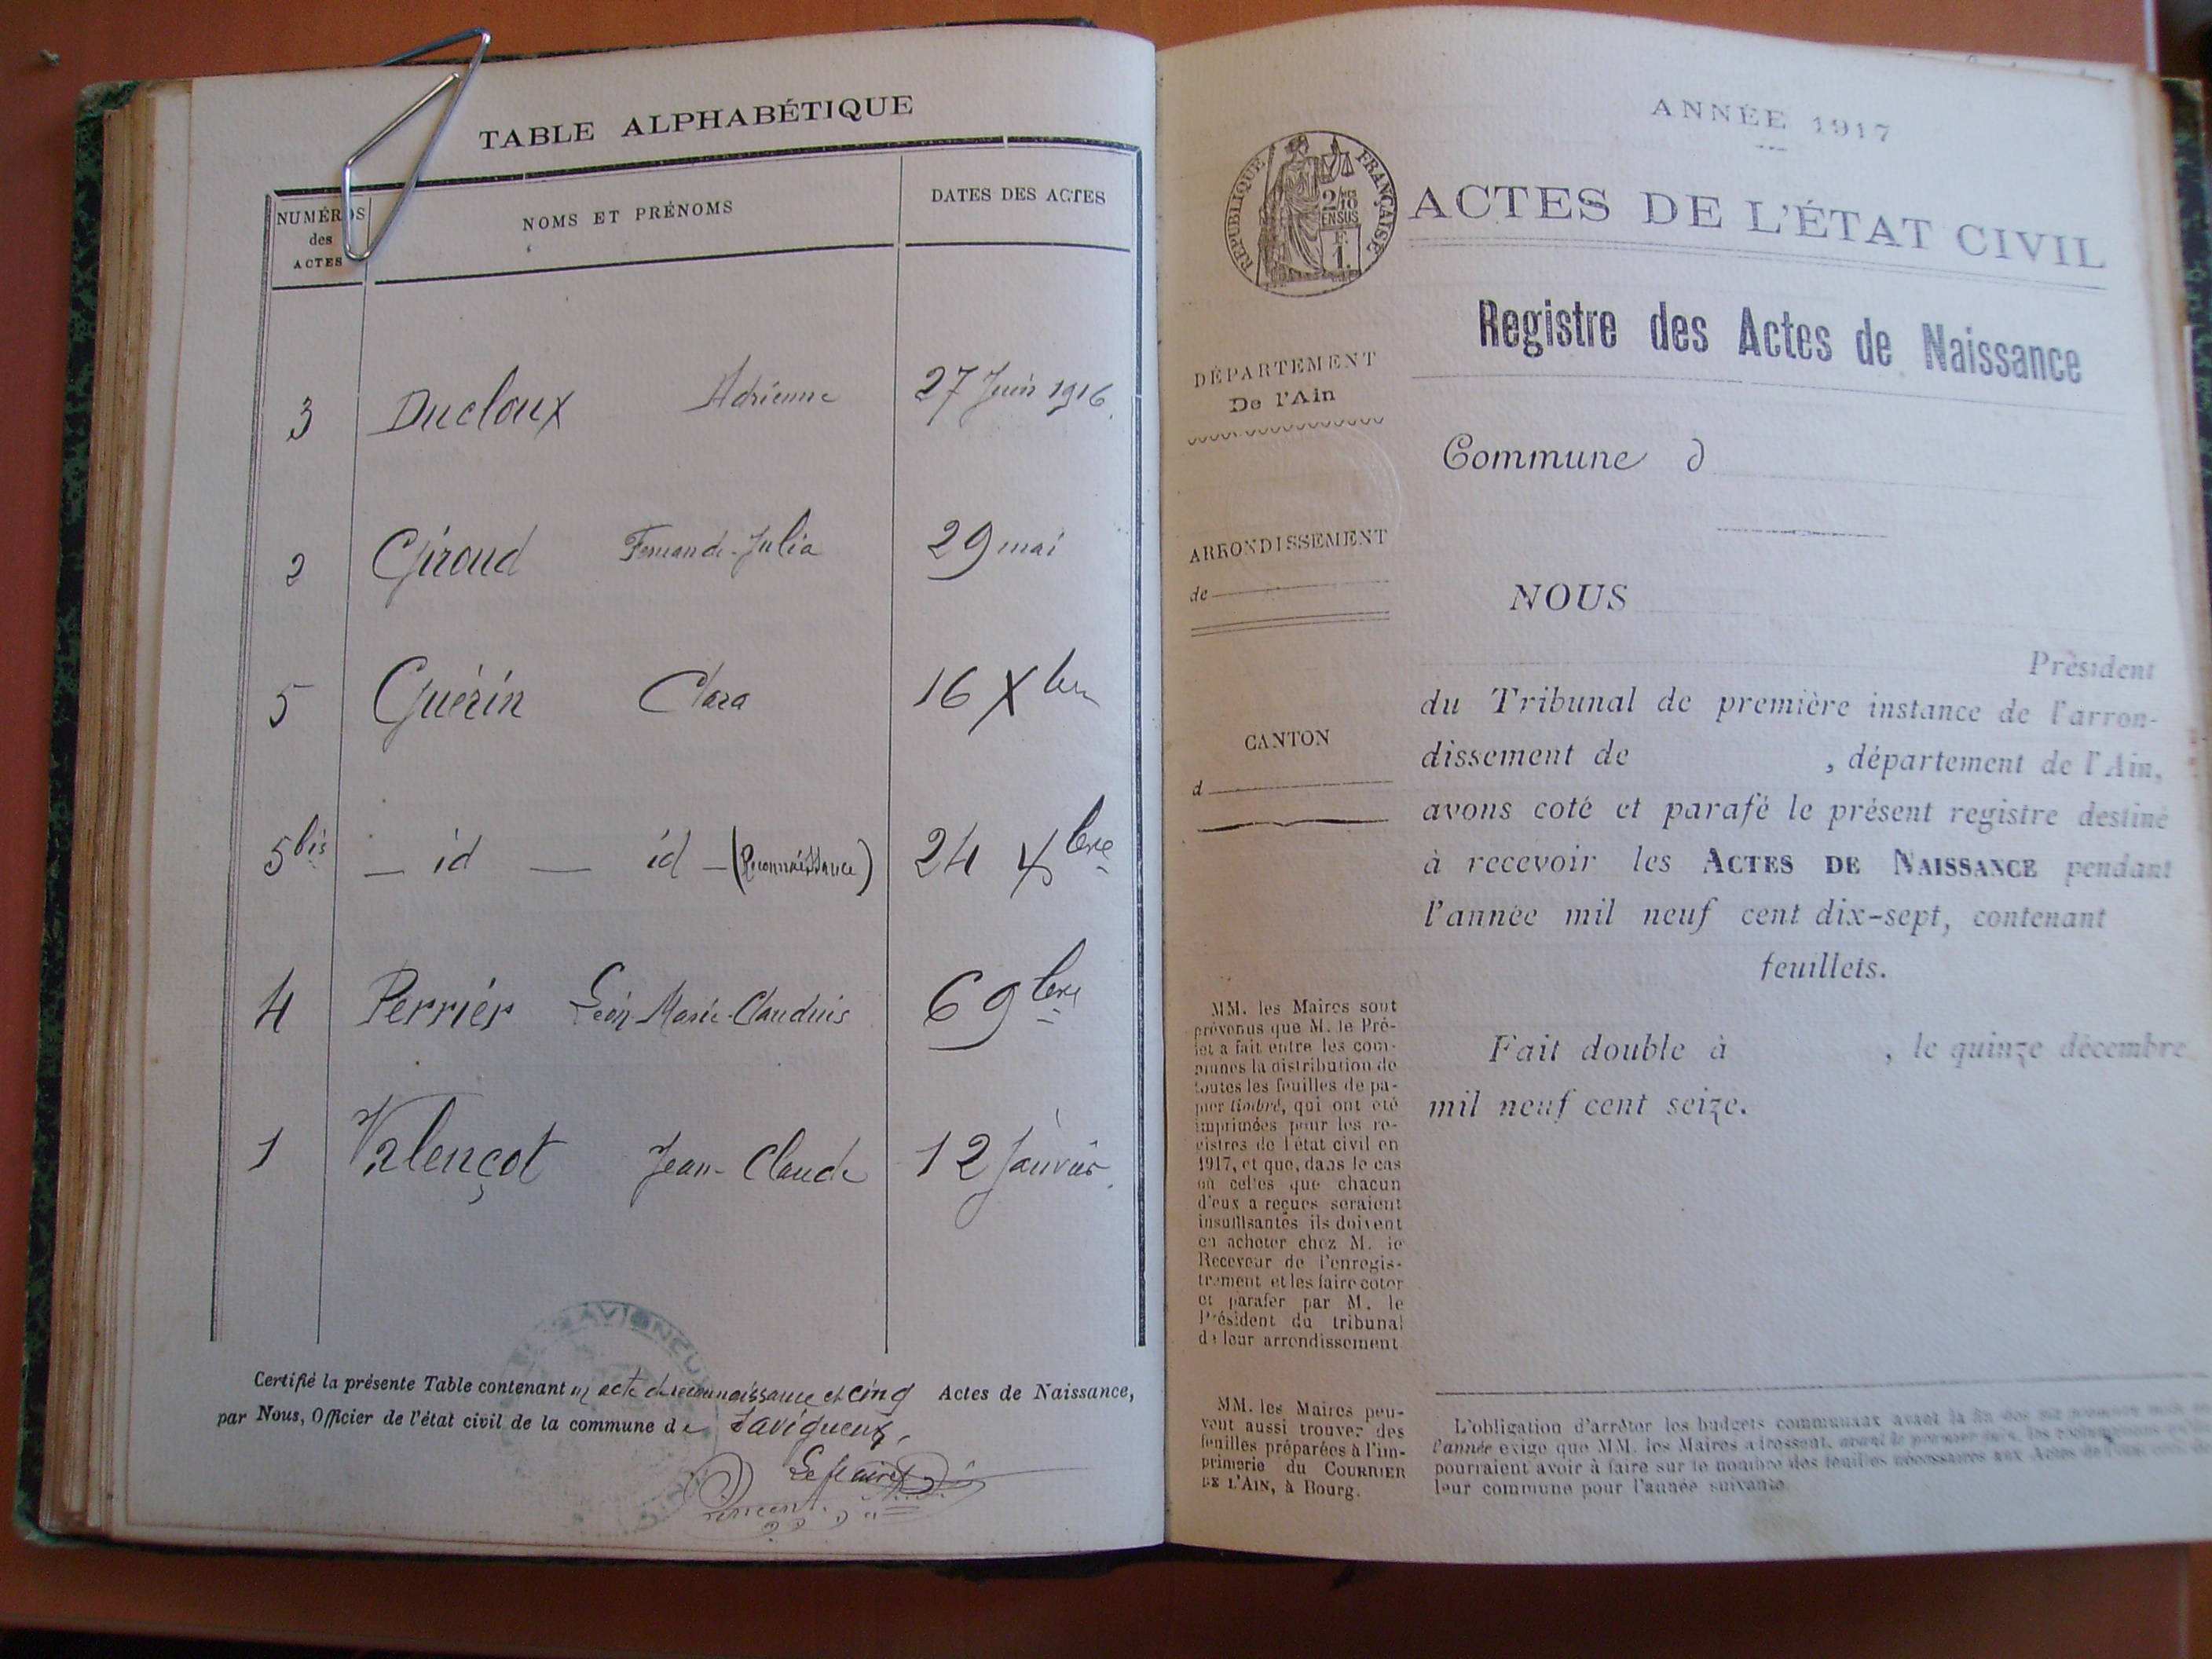 TABLE ALPHABÉTIQUE
NUMÉROS
des
ACTES
NOMS ET PRÉNOMS
DATES DES ACTES
3 Ducloux Adrienne 27 Juin 1916
2 Giroud Fernande-Julia 29 mai
5 Guérin Clara 16 Xbre
5bis — id — id — (Reconnaissance) 24 Xbre
4 Perrier Léon-Marie-Claudius 6 9bre
1 Valençot Jean-Claude 12 Janvier
Certifié la présente Table contenant un acte de reconnaissance et cinq Actes de Naissance,
par Nous, Officier de l'état civil de la commune de Savigneux,
Le Maire
SAVIGNEUX
ANNÉE 1917
RÉPUBLIQUE FRANÇAISE
2/10
EN SUS
F.
1.
ACTES DE L'ÉTAT CIVIL
Registre des Actes de Naissance
DÉPARTEMENT
De l'Ain
Commune d
ARRONDISSEMENT
de
CANTON
d
NOUS
Président
du Tribunal de première instance de l'arron-
dissement de , département de l'Ain,
avons coté et parafé le présent registre destiné
à recevoir les ACTES DE NAISSANCE pendant
l'année mil neuf cent dix-sept, contenant
feuillets.
Fait double à , le quinze décembre
mil neuf cent seize.
MM. les Maires sont
prévenus que M. le Pré-
fet a fait entre les com-
munes la distribution de
toutes les feuilles de pa-
pier timbré, qui ont été
imprimées pour les re-
gistres de l'état civil en
1917, et que, dans le cas
où celles que chacun
d'eux a reçues seraient
insuffisantes ils doivent
en acheter chez M. le
Receveur de l'enregis-
trement et les faire coter
et parafer par M. le
Président du tribunal
de leur arrondissement
MM. les Maires peu-
vent aussi trouver des
feuilles préparées à l'im-
primerie du COURRIER
DE L'AIN, à Bourg.
L'obligation d'arrêter les budgets communaux avant la fin des
l'année exige que MM. les Maires adressent, avant le
pourraient avoir à faire sur le nombre des feuilles nécessaires aux Actes de
leur commune pour l'année suivante.